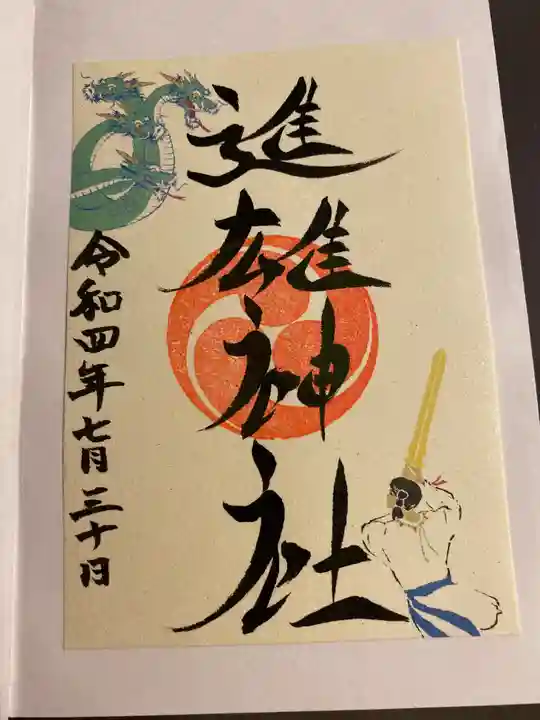 進雄神社
令和四年七月三十日